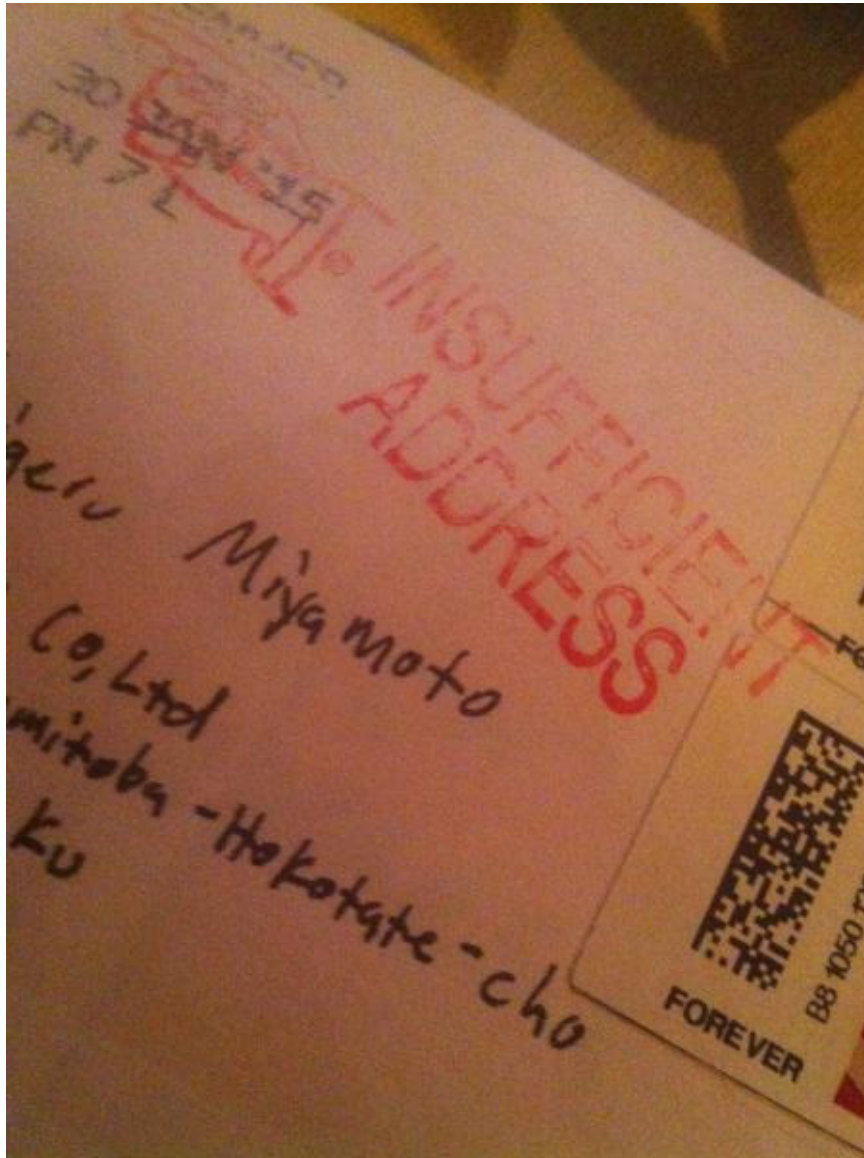 30 JAN '15
PM 7 L
INSUFFICIENT
ADDRESS
geru Miyamoto
Co, Ltd
mitoba-Hokotate-cho
Ku
FOREVER
B8 1050